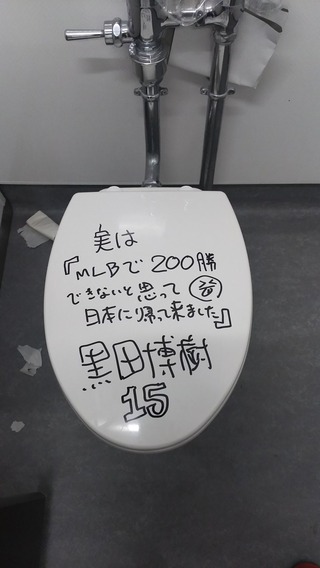 実は
『MLBで200勝
できないと思って
日本に帰って来ました』
黒田博樹
15